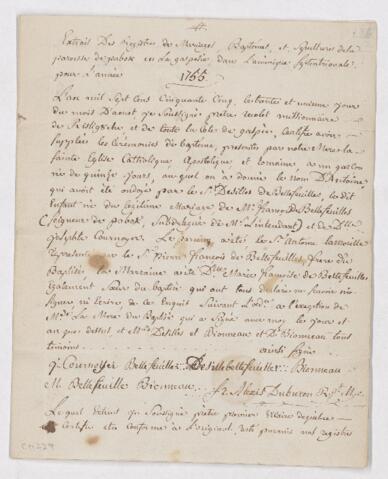 Extrait Des Registres de Mariages, Baptemes, et Sepultures de la
paroisse de pabok en La gaspesie dans L'amerique septentrionale
pour L'année
1755
L'an mil sept cens Cinquante Cinq, le trente et unieme jour
du mois D'aout je Soussigné pretre recolet missionnaire
de Ristigouche et de toute la Cote de gaspée, certifie avoir
supplée les Ceremonies du bapteme, prescrites par notre Mere la
sainte Eglise Catholique, Apostolique et romaine a un garçon
né de quinze jours, au quel on a donné le nom D'Antoine
qui avoit été ondoyé par le Sr. Desilles de Bellefeuilles, le dit
Enfant né du Legitime Mariage de Mr. françois De Bellefeuilles
(seigneur de pabok, Subdelegué de Mr. L'intendant) et de Dlle.
josephte Cournoyer. Le parain a été le Sr. Antoine
representé par le Sr. Pierre françois de Bellefeuilles, frere du
Baptisé La Marraine a été Dlle. Marie françoise de Bellefeuilles
egalement Soeur du Baptisé qui ont tous declaré ne savoir ni
signer ni ecrire de ce Enquis Suivant L'ordce. a l'exception de
Mde. La Mere du Baptisé qui a signé avec nous les jour et
an que dessus et Mrs. Desilles et Bionneau et De. Bionneau tous
temoins ainsi signé
j. Cournoyer Bellefeuilles Desillebellefeuilles Bionneau
M. Bellefeuille Bionneau fr Alexis Duburon R. ptre. Mre.
Le quel Extrait je Soussigné pretre premier Vicaire de
Certifie etre Conforme a L'original porté parmis nos registres